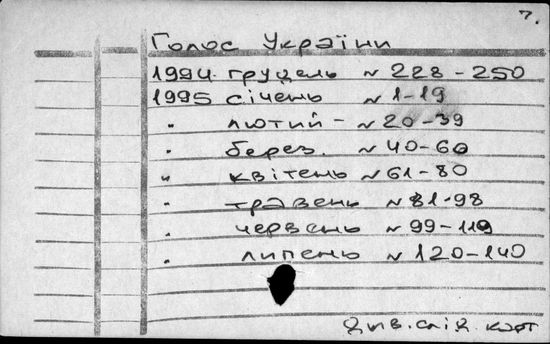 7.
Голос України
1994. грудень № 228-250
1995 січень № 1-19
" лютий - № 20-39
" берез. № 40-60
" квітень № 61-80
" травень № 81-98
" червень № 99-119
" липень № 120-140
Див. слід. карт